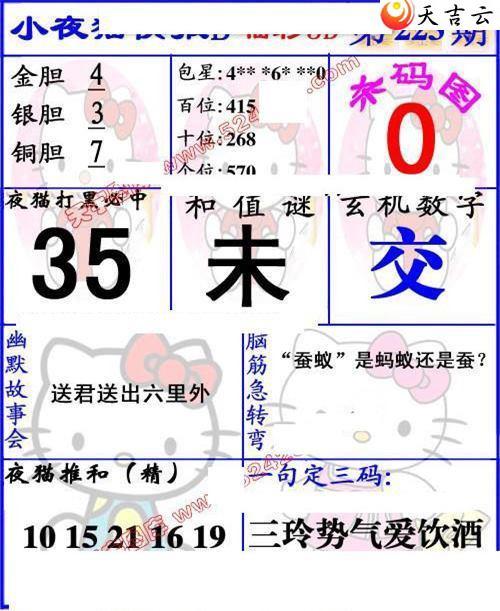 天吉云
小夜猫
福彩3D
第223期
金胆 4
银胆 3
铜胆 7
包星:4** *6* **0
百位:415
十位:268
个位:570
杀码图
0
夜猫打黑必中
35
和值谜
未
玄机数字
交
幽默故事会
送君送出六里外
脑筋急转弯
“蚕蚁”是蚂蚁还是蚕?
夜猫推和(精)
10 15 21 16 19
一句定三码:
三玲势气爱饮酒